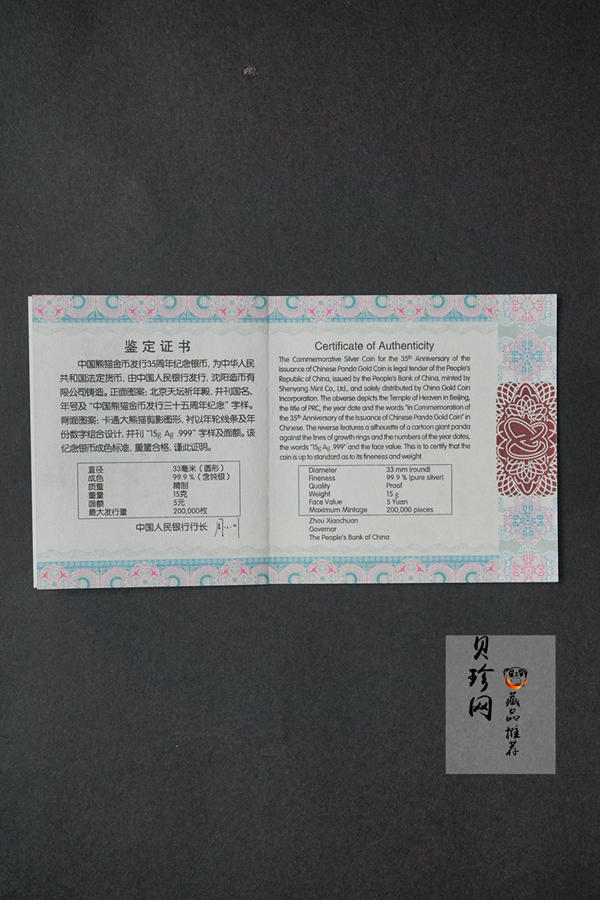 鉴定证书
中国熊猫金币发行35周年纪念银币，为中华人民
共和国法定货币，由中国人民银行发行，沈阳造币有
限公司铸造。正面图案：北京天坛祈年殿，并刊国名、
年号及“中国熊猫金币发行三十五周年纪念”字样。
背面图案：卡通大熊猫剪影图形，衬以年轮线条及年
份数字组合设计，并刊“15g Ag .999”字样及面额。该
纪念银币成色标准，重量合格，谨此证明。
直径 33毫米（圆形）
成色 99.9％（含纯银）
质量 精制
重量 15克
面额 5元
最大发行量 200,000枚
中国人民银行行长
Certificate of Authenticity
The Commemorative Silver Coin for the 35th Anniversary of the
Issuance of Chinese Panda Gold Coin is legal tender of the People's
Republic of China, issued by the People's Bank of China, minted by
Shenyang Mint Co., Ltd., and solely distributed by China Gold Coin
Incorporation. The obverse depicts the Temple of Heaven in Beijing,
the title of PRC, the year date and the words "in Commemoration of
the 35th Anniversary of the Issuance of Chinese Panda Gold Coin" in
Chinese. The reverse features a silhouette of a cartoon giant panda
against the lines of growth rings and the numbers of the year dates,
the words "15g Ag .999" and the face value. This is to certify that the
coin is up to standard as to its fineness and weight.
Diameter 33 mm (round)
Fineness 99.9 % (pure silver)
Quality Proof
Weight 15 g
Face Value 5 Yuan
Maximum Mintage 200,000 pieces
Zhou Xiaochuan
Governor
The People's Bank of China
贝珍网
藏品推荐